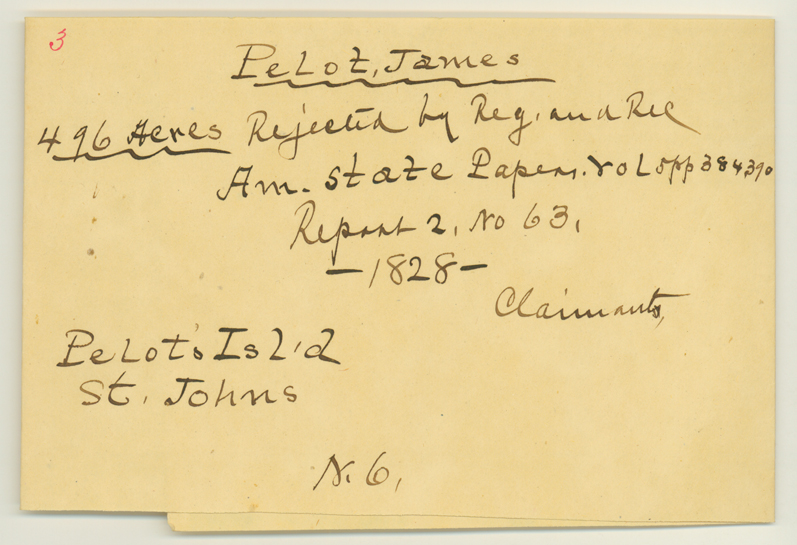 3
Pelot, James
496 Acres Rejected by Reg. and Rec
Am. State Papers. vol 5 pp 384 390
Report 2, No 63,
- 1828 -
Claimants,
Pelot's Isl'd
St. Johns
N. 6,